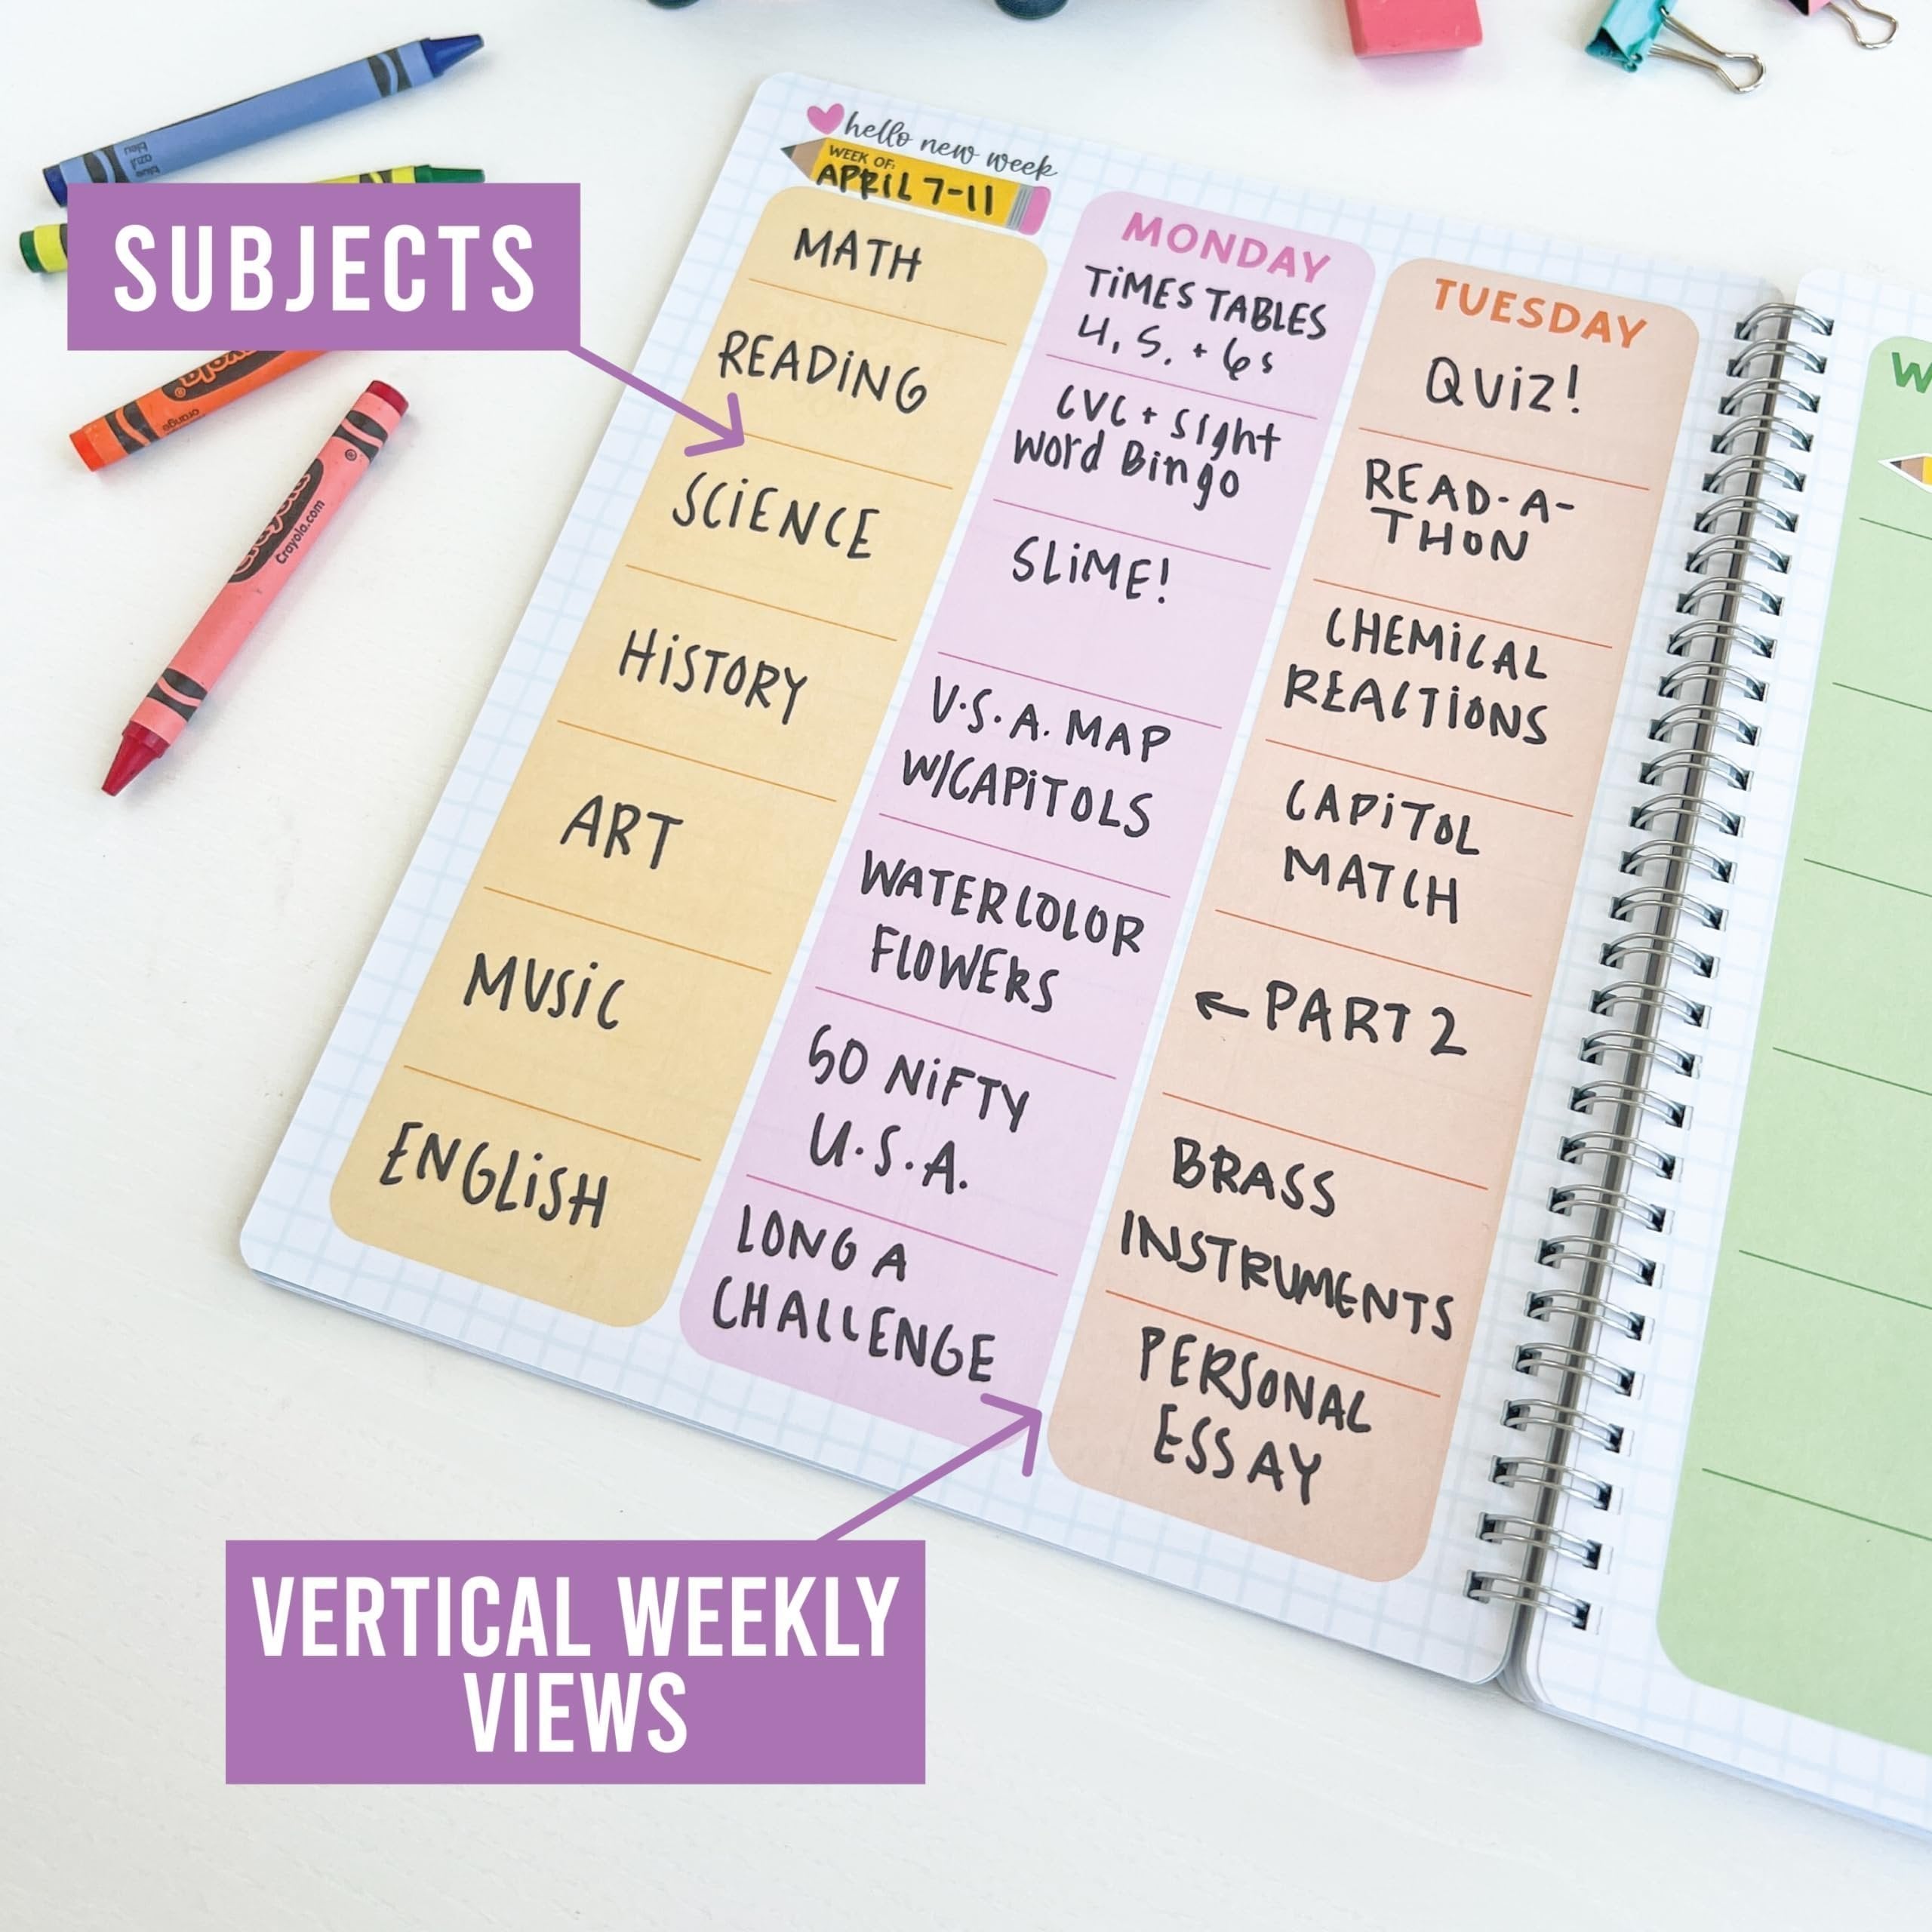 hello new week
WEEK OF:
APRiL 7-11
SUBJECTS
MATH
READiNG
SCiENCE
HiSTORY
ART
MUSiC
ENGLiSH
MONDAY
TiMES TABLES
4, 5, + 6s
CVC + Sight
word Bingo
SLiME!
U.S.A. MAP
W/CAPiTOLS
WATERCOLOR
FLOWERS
50 NiFTY
U.S.A.
LONG A
CHALLENGE
TUESDAY
QUiZ!
READ-A-
THON
CHEMiCAL
REACTiONS
CAPiTOL
MATCH
← PART 2
BRASS
INSTRUMENTS
PERSONAL
ESSAY
W
VERTICAL WEEKLY
VIEWS
bleu
azul
blue
orange
Crayola
Crayola.com